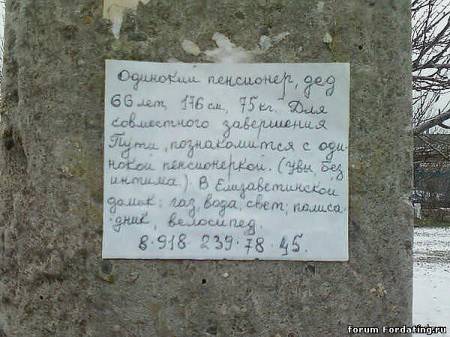 Одинокий пенсионер, дед
66 лет, 176 см, 75 кг. Для
совместного завершения
Пути, познакомится с оди-
нокой пенсионеркой. (Увы, без
интима). В Елизаветинской
домик: газ, вода, свет; полиса-
дник, велосипед.
8·918·239·78·45.
forum Fordating.ru